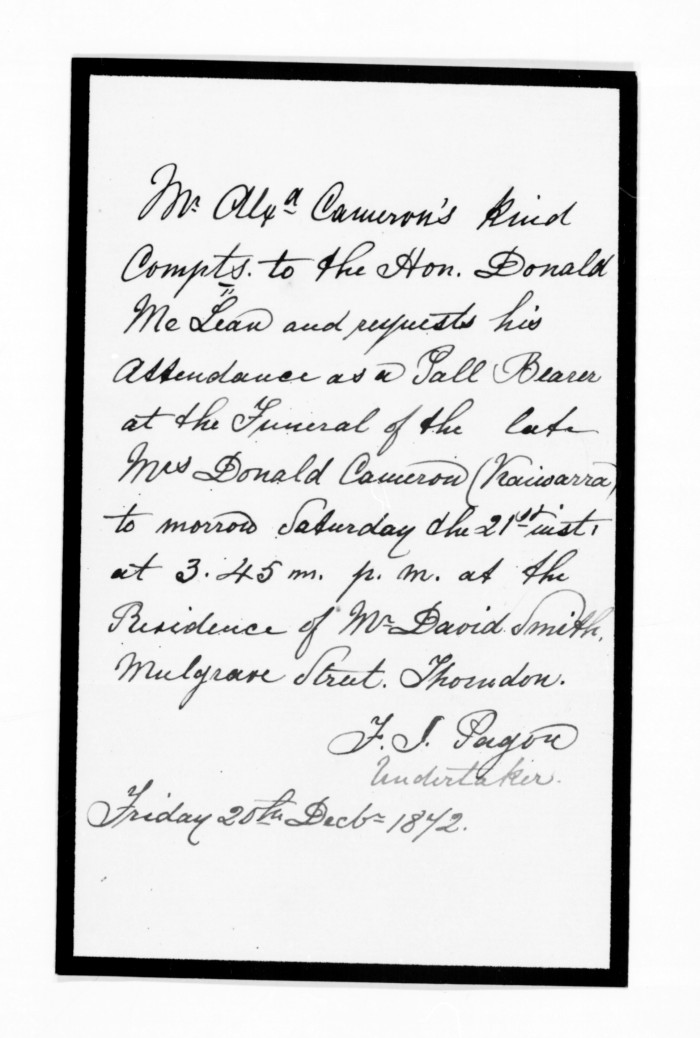 Mr. Alxa Cameron's kind
Compts. to the Hon. Donald
Mc Lean and requests his
Attendance as a Pall Bearer
at the Funeral of the late
Mrs Donald Cameron (Kaiwarra)
to morrow Saturday the 21st inst.
at 3.45 m. p. m. at the
Residence of Mr David Smith,
Mulgrave Street. Thorndon.
F. J. Pagon
Undertaker.
Friday 20th Decbr 1872.